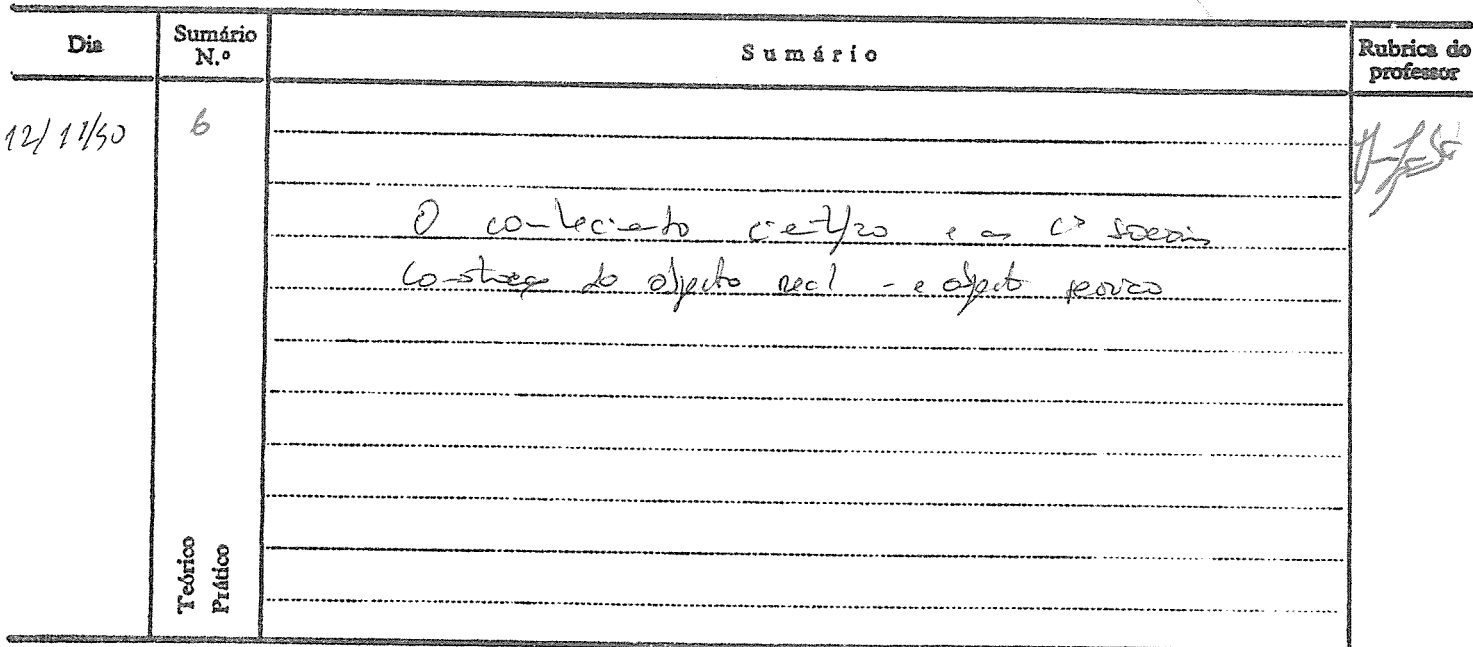 Dia
Sumário N.º
Sumário
Rubrica do professor
12/11/90
6
O conhecimento científico e as Cªs sociais
Construção do objecto real - e objecto teórico
Teórico
Prático